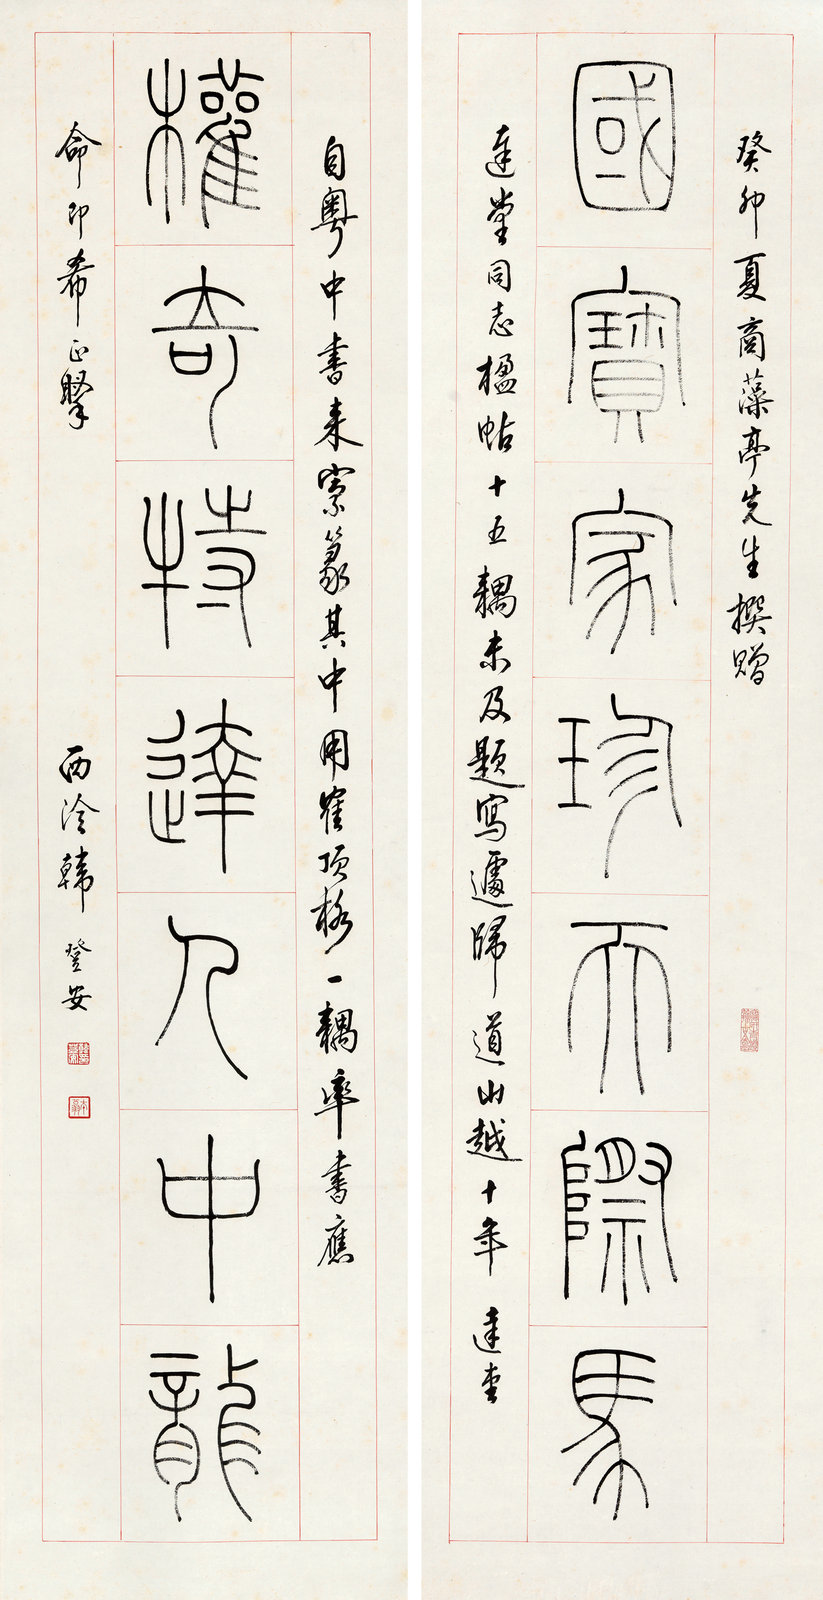 癸卯夏商藻亭先生撰贈
國寶家珍天際馬
達堂同志楹帖十五耦未及題寫遽歸道山越十年達堂
自粵中書來索篆其中用寉頂格一耦率書應
權奇特達人中龍
命即希正 西泠韓登安